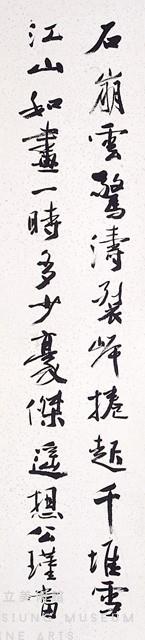 石崩雲驚濤裂岸捲起千堆雪
江山如畫一時多少豪傑遙想公瑾當
立美術館
SIUNG MUSEUM
INE ARTS